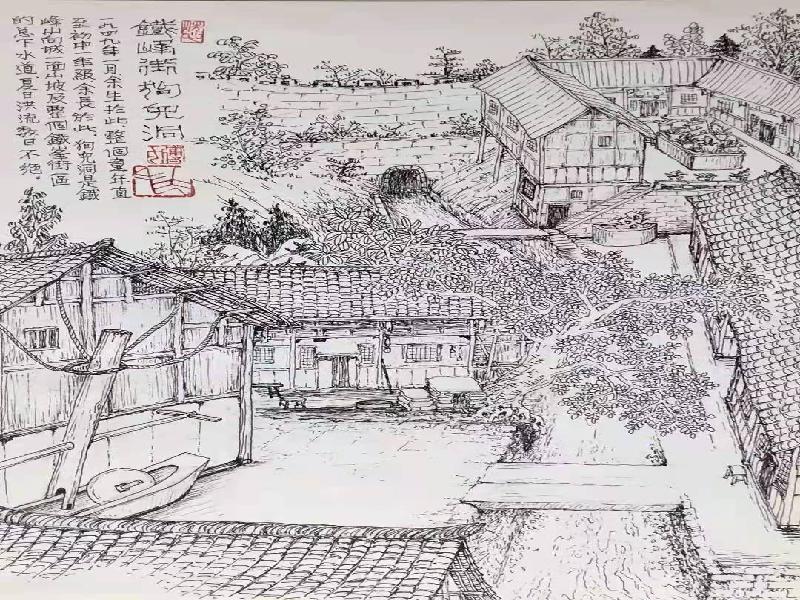 鐵峰街狗兒洞
一九四九年一月余生於此整個童年直
至初中一年級余長於此狗兒洞是鐵
峰山向城一面山坡及整個鐵峰街區
的总下水道夏日洪流数日不绝